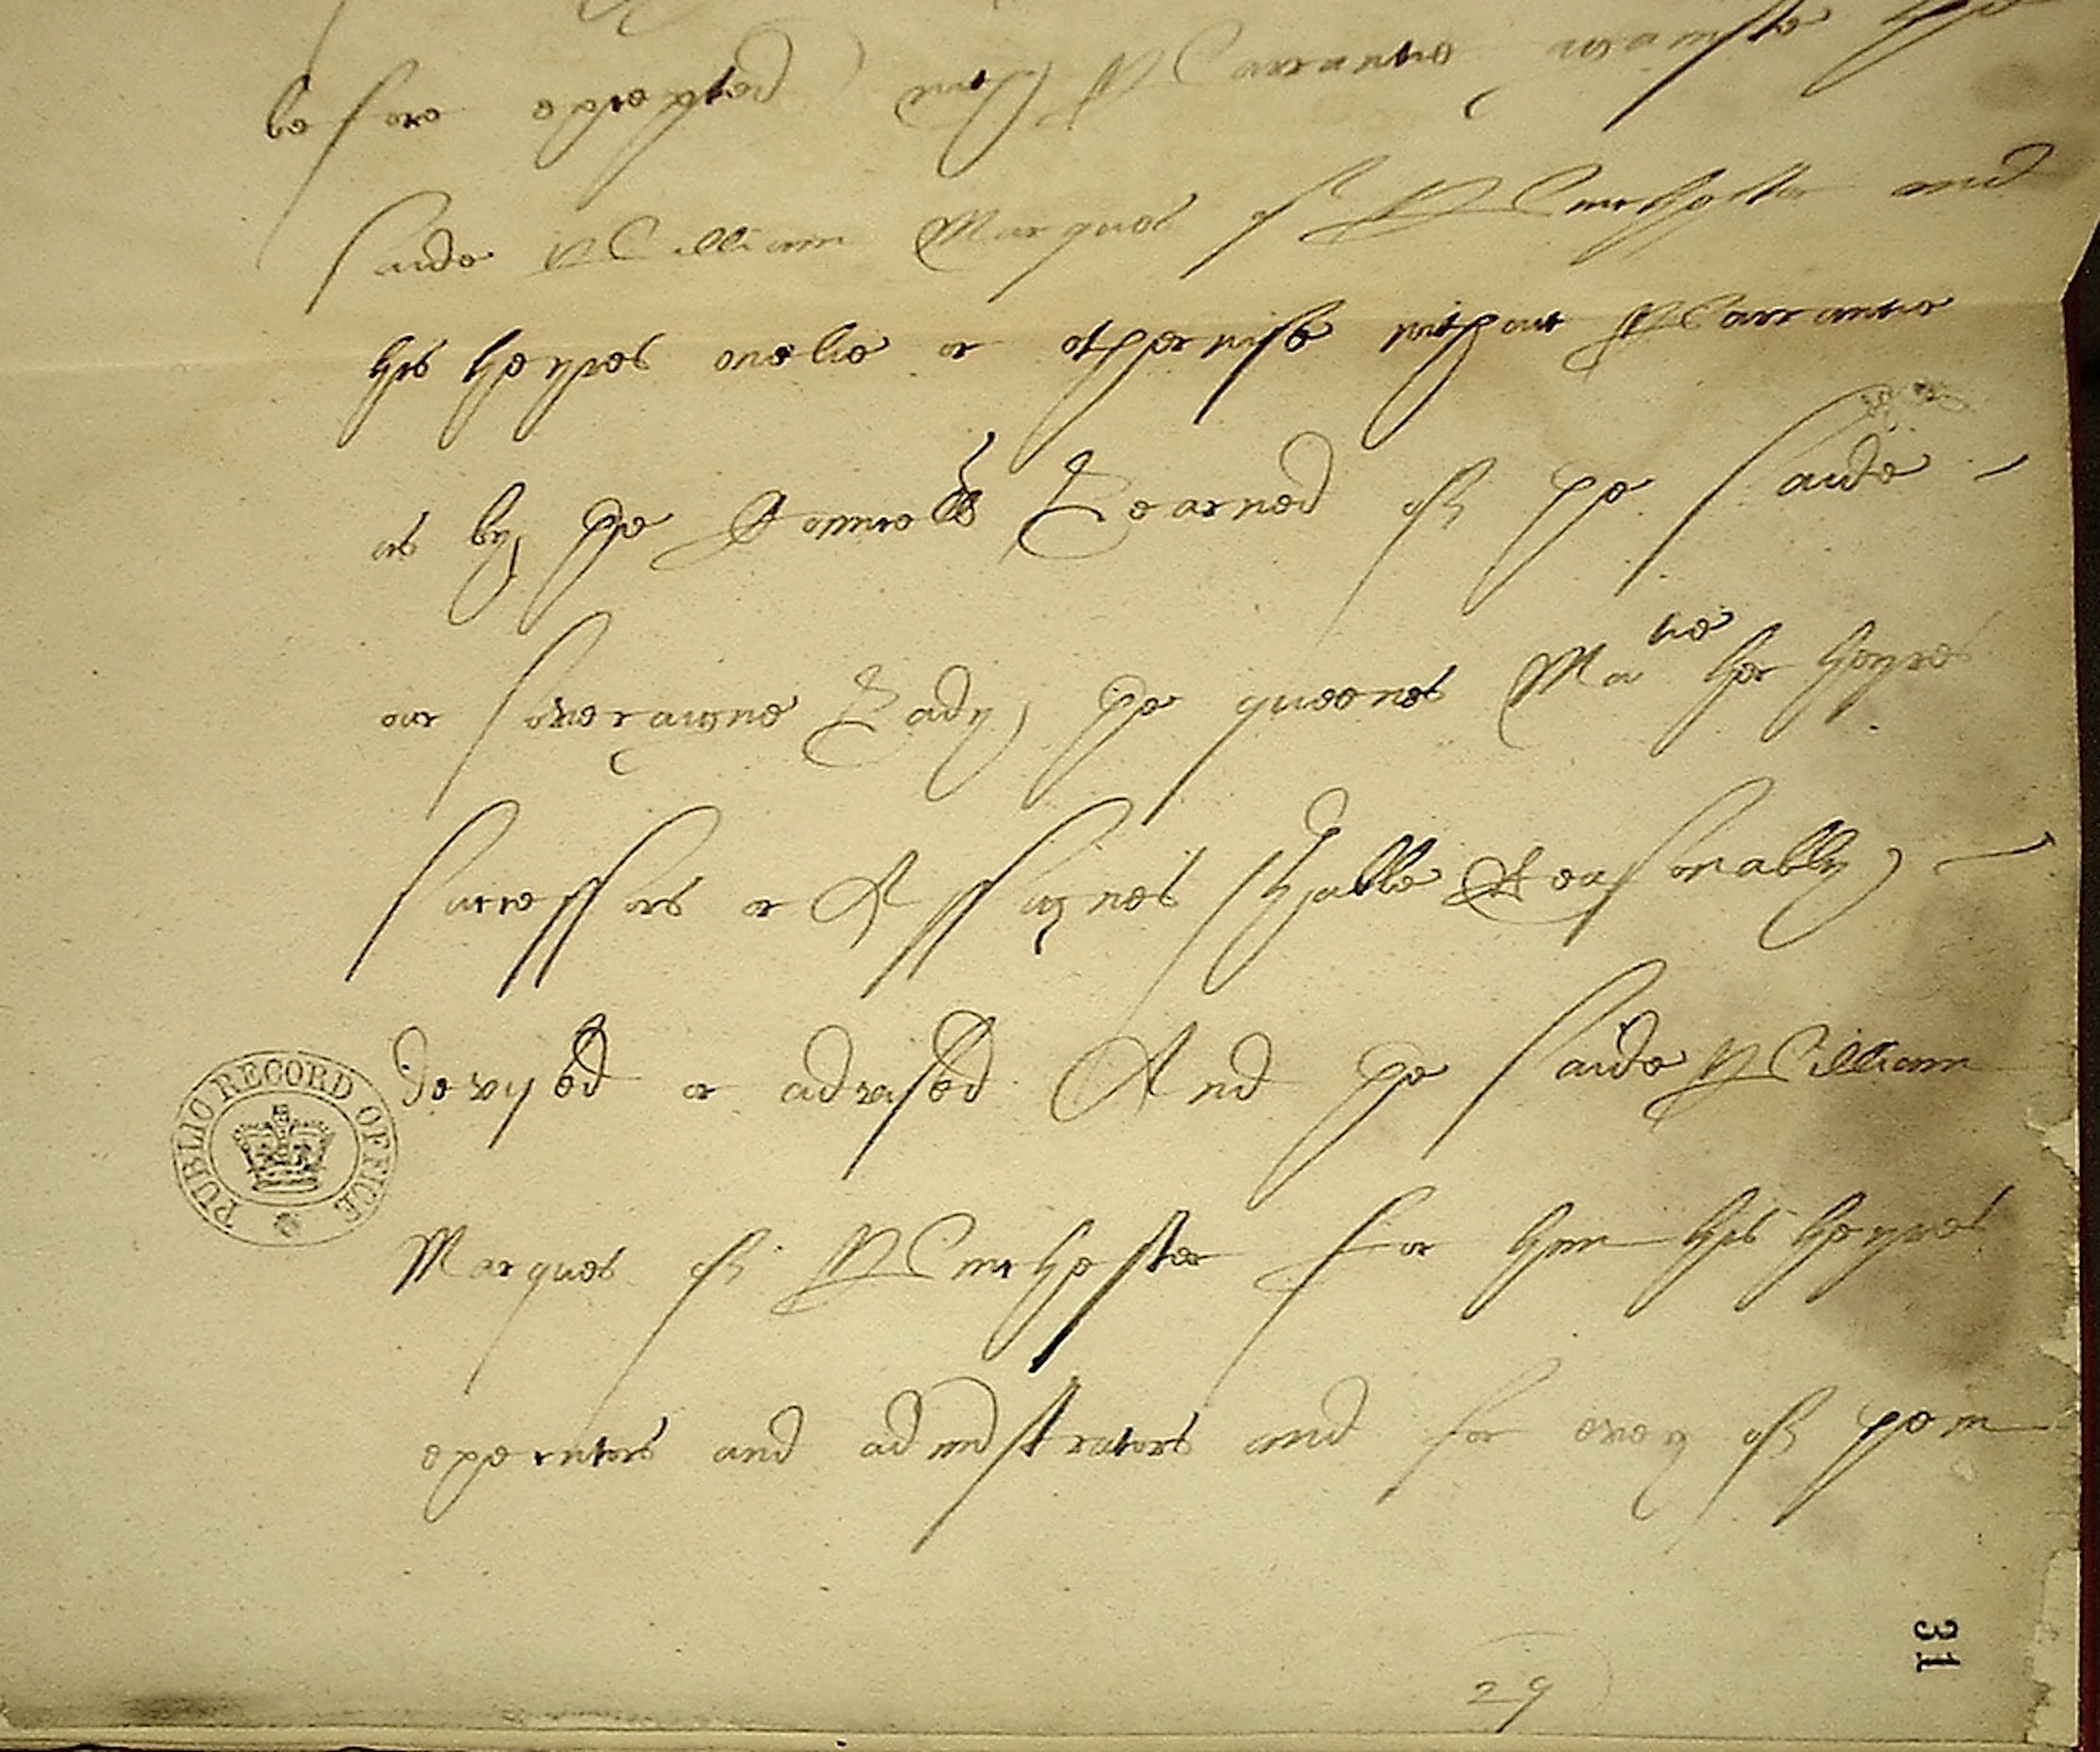 before excepted) with Warrantie againste the
saide William Marques of Winchester and
his heyres onelie or otherwise without Warrantie
as by the Counsell Learned of the saide
our soveraigne Lady the queenes Ma tie her heyres
successors or Assignes shalbe Reasonably
devysed or advysed And the saide William
Marques of Winchester for hym his heyres
executors and administrators and for every of them
PUBLIC RECORD OFFICE
29
31